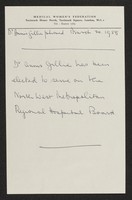 MEDICAL WOMEN'S FEDERATION
Tavistock House North, Tavistock Square, London, W.C.1
Dr Annis Gillie phoned March 20 1958
Dr Annis Gillie has been
elected to serve on the
North West Metropolitan
Regional Hospital Board